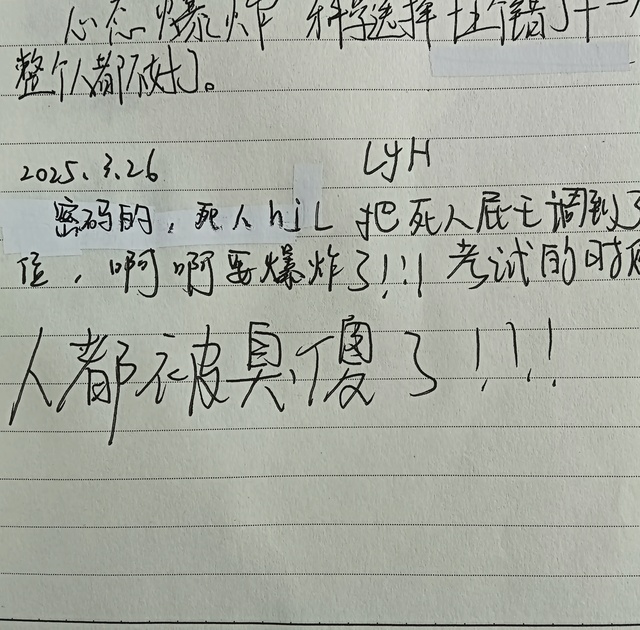 心态爆炸 科学选择十个错了十一个
整个人都不好了。
2025.3.26 LYH
密码的，死人hjL 把死人屁王调到了
位，啊啊要爆炸了!!! 考试的时候
人都被臭傻了!!!